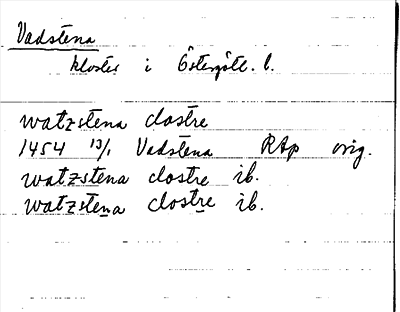 Vadstena
kloster i Östergötl. l.
watzstena clostre
1454 13/1 Vadstena RAp orig.
watzstena clostre ib.
watzstena clostre ib.